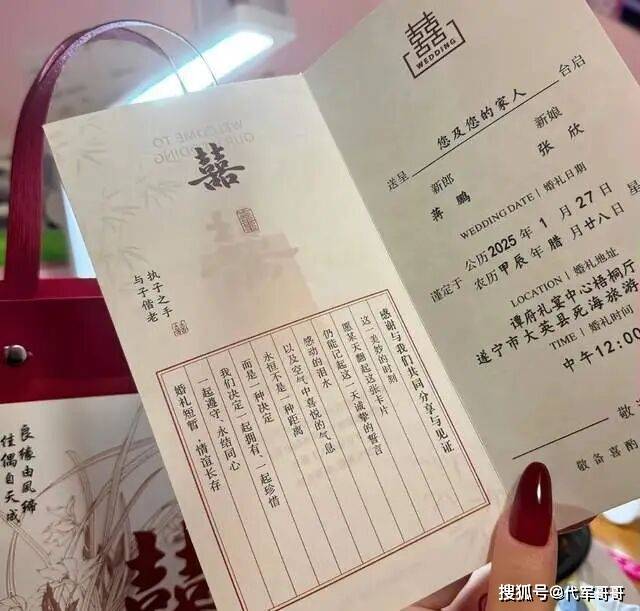 囍
WEDDING
送呈 您及您的家人 台启
新郎 新娘
蒋鹏 张欣
WEDDING DATE | 婚礼日期
谨定于 公历2025年1月27日 星
农历甲辰年腊月廿八日
LOCATION | 婚礼地址
谭府礼堂中心梧桐厅
遂宁市大英县死海旅游
TIME | 婚礼时间
中午12:00
敬
敬备喜酌
WELCOME TO
OUR WEDDING
囍
执子之手
与子偕老
感谢与我们共同分享与见证
这一美妙的时刻
愿某天翻起这张卡片
仍能记起这一天诚挚的誓言
感动的泪水
以及空气中喜悦的气息
永恒不是一种距离
而是一种决定
我们决定一起拥有、一起珍惜
一起遵守、永结同心
婚礼短暂 情谊长存
良缘由風缔
佳偶自天成
囍
搜狐号@代军哥哥